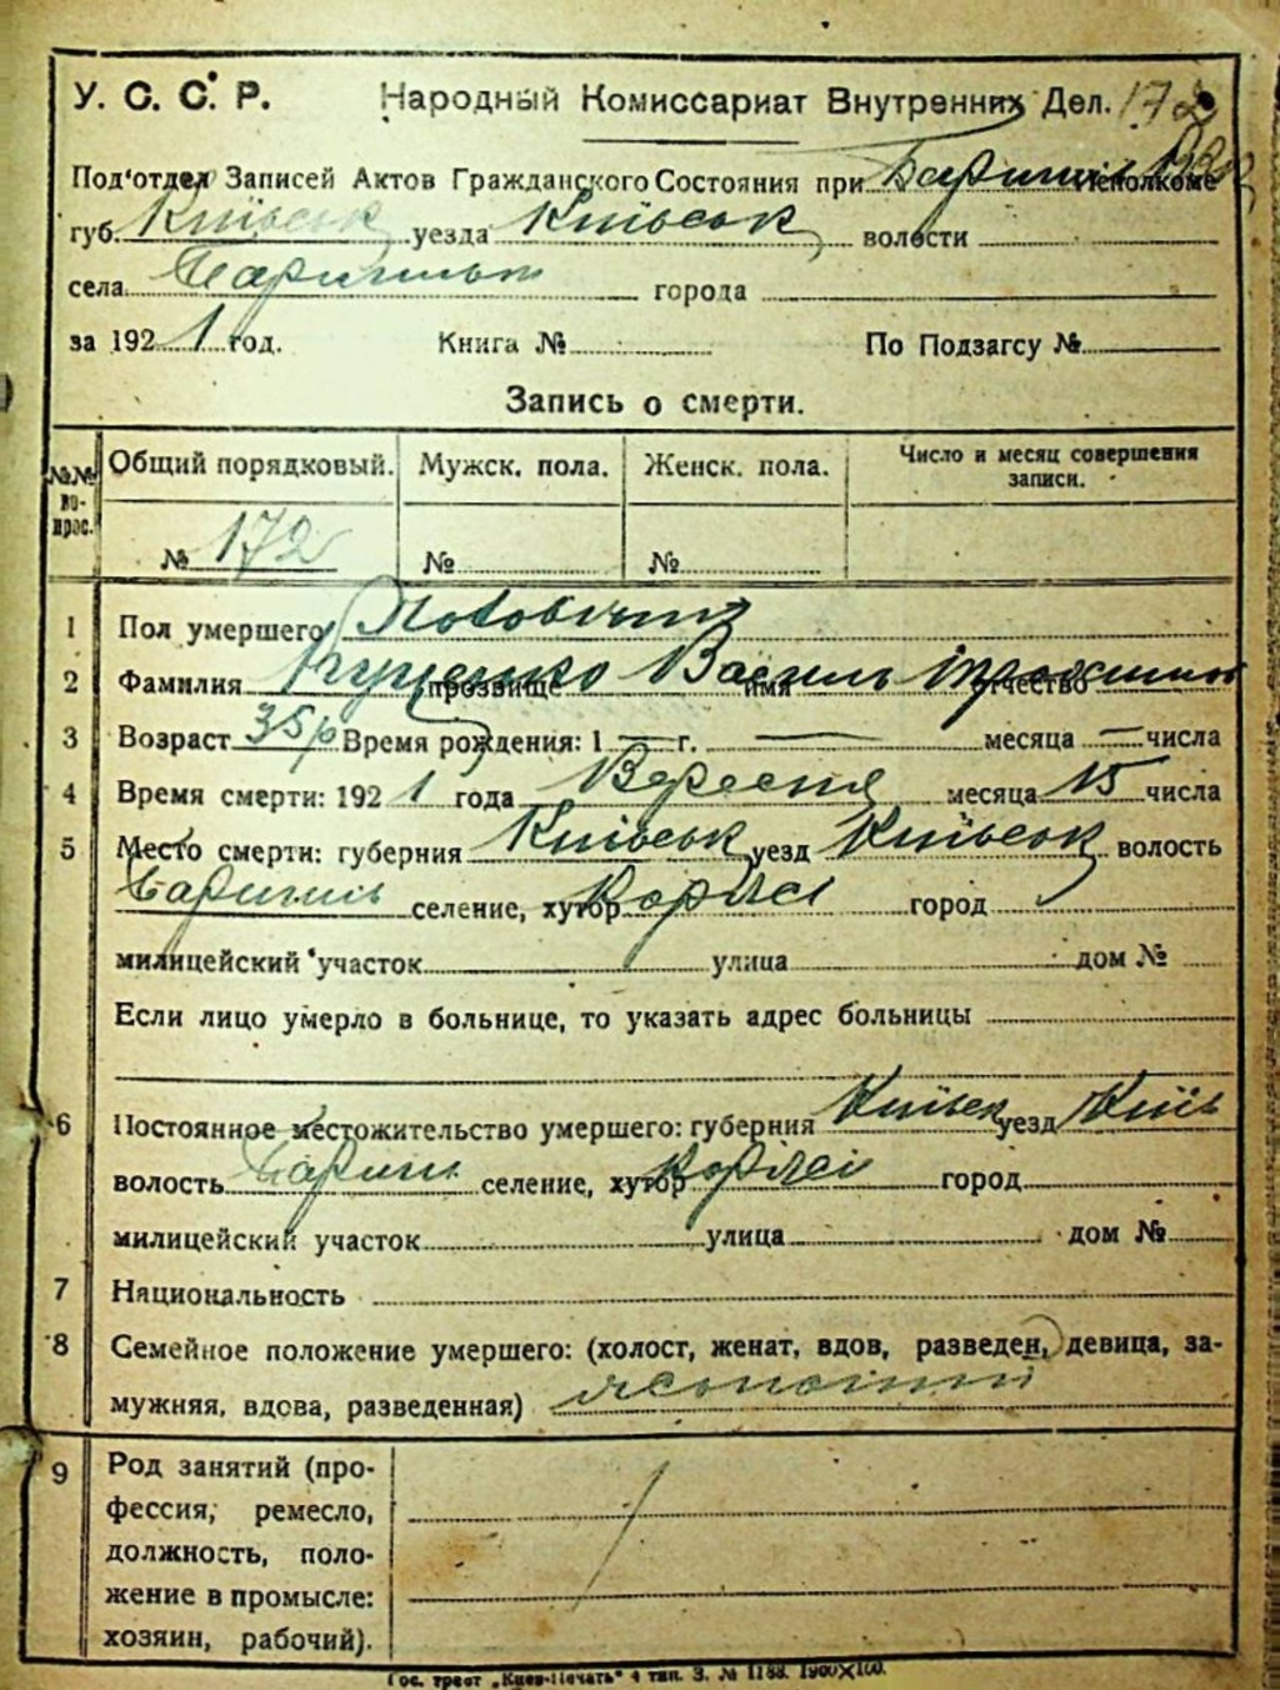 У. С. С. Р. Народный Комиссариат Внутренних Дел. 172
Под'отдел Записей Актов Гражданского Состояния при Исполкоме
губ. Київськ уезда Київськ волости
села города
за 1921 год. Книга № По Подзагсу №
Запись о смерти.
№№ во-прос. Общий порядковый. Мужск. пола. Женск. пола. Число и месяц совершения записи.
№ 172 № №
1 Пол умершего Чоловічий
2 Фамилия прозвище Василь имя отчество
3 Возраст 35 р Время рождения: 1 — г. — месяца — числа
4 Время смерти: 1921 года Вересня месяца 15 числа
5 Место смерти: губерния Київськ уезд Київськ волость
Баришпіль селение, хутор город
милицейский участок улица дом №
Если лицо умерло в больнице, то указать адрес больницы
6 Постоянное местожительство умершего: губерния Київськ уезд Київ
волость Бариш селение, хутор город
милицейский участок улица дом №
7 Национальность
8 Семейное положение умершего: (холост, женат, вдов, разведен, девица, за-
мужняя, вдова, разведенная)
9 Род занятий (про-
фессия, ремесло,
должность, поло-
жение в промысле:
хозяин, рабочий).
Гос. трест „Киев-Печать" 4 тип. З. № 1188. 1900×100.